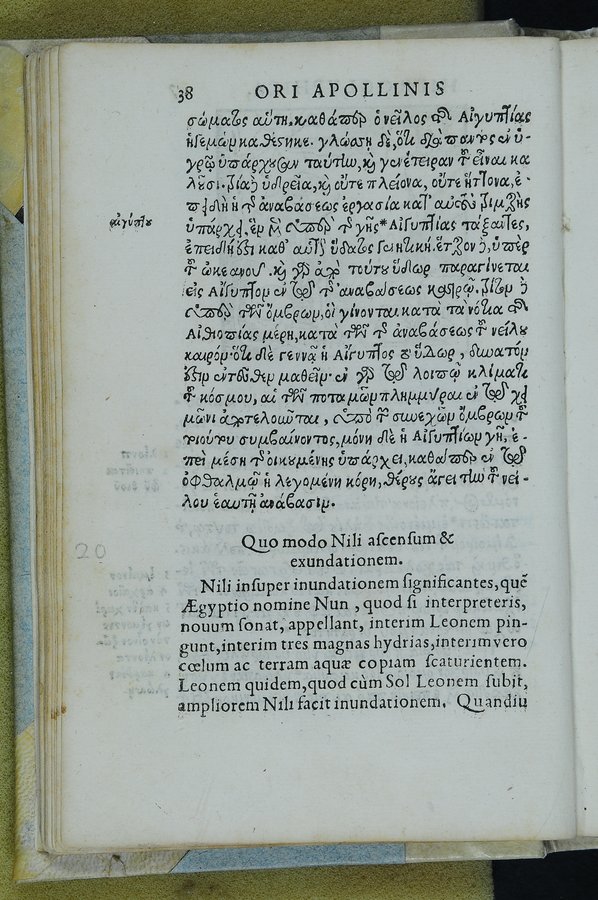 38 ORI APOLLINIS
σώματος αὕτη. καθάπερ ὁ νεῖλος τῆς Αἰγυπτίας
ἡγεμὼν καθέστηκε. γλώσσῃ δὲ, ὅτι διὰ παντὸς ἐν ὑ-
γρῷ ὑπάρχουσαν ταύτην, καὶ γενέτειραν τοῦ εἶναι κα
λοῦσι. τρία δὲ ὑδρεῖα, καὶ οὔτε πλείονα, οὔτε ἥττονα, ἐ-
πειδὴ ἡ τῆς ἀναβάσεως ἐργασία κατ' αὐτοὺς τριμερὴς
ὑπάρχει. ἓν μὲν ὑπὲρ τῆς γῆς * Αἰγυπτίας τάξαντες,
αἰγύπτου
ἐπειδὴ ἐστι καθ' αὑτὴν ὕδατος γεννητική. ἕτερον δὲ, ὑπὲρ
τοῦ ὠκεανοῦ. καὶ γὰρ ἀπὸ τούτου ὕδωρ παραγίνεται
εἰς Αἴγυπτον ἐν τῷ τῆς ἀναβάσεως καιρῷ. τρίτον δὲ
ὑπὲρ τῶν ὄμβρων, οἳ γίνονται κατὰ τὰ νότια τῆς
Αἰθιοπίας μέρη, κατὰ τὸν τῆς ἀναβάσεως τοῦ νείλου
καιρόν. ὅτι δὲ γεννᾷ ἡ Αἴγυπτος τὸ ὕδωρ, δυνατόν
ἐστιν ἐντεῦθεν μαθεῖν. ἐν γὰρ τῷ λοιπῷ κλίματι
τοῦ κόσμου, αἱ τῶν ποταμῶν πλημμύραι ἐν τῷ χει
μῶνι ἀποτελοῦνται, ὑπὸ τῶν συνεχῶν ὄμβρων τοῦ
τοιούτου συμβαίνοντος, μόνη δὲ ἡ Αἰγυπτίων γῆ, ἐ-
πεὶ μέση τῆς οἰκουμένης ὑπάρχει, καθάπερ ἐν τῷ
ὀφθαλμῷ ἡ λεγομένη κόρη, θέρους ἄγει τὴν τοῦ νεί-
λου ἑαυτῇ ἀνάβασιν.
Quo modo Nili ascensum &
exundationem.
20
Nili insuper inundationem significantes, quẽ
Ægyptio nomine Nun , quod si interpreteris,
nouum sonat, appellant, interim Leonem pin-
gunt, interim tres magnas hydrias, interim vero
cœlum ac terram aquæ copiam scaturientem.
Leonem quidem, quod cùm Sol Leonem subit,
ampliorem Nili facit inundationem. Quandiu